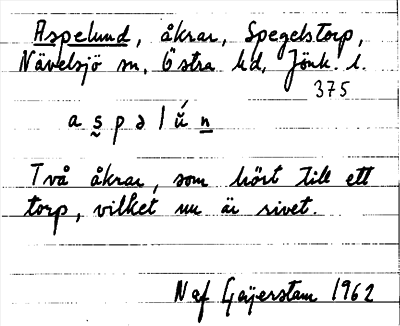 Aspelund, åkrar, Spegelstorp,
Nävelsjö sn, Östra hd, Jönk. l.
375
a s p ə l ú n
Två åkrar, som hört till ett
torp, vilket nu är rivet.
N af Geijerstam 1962